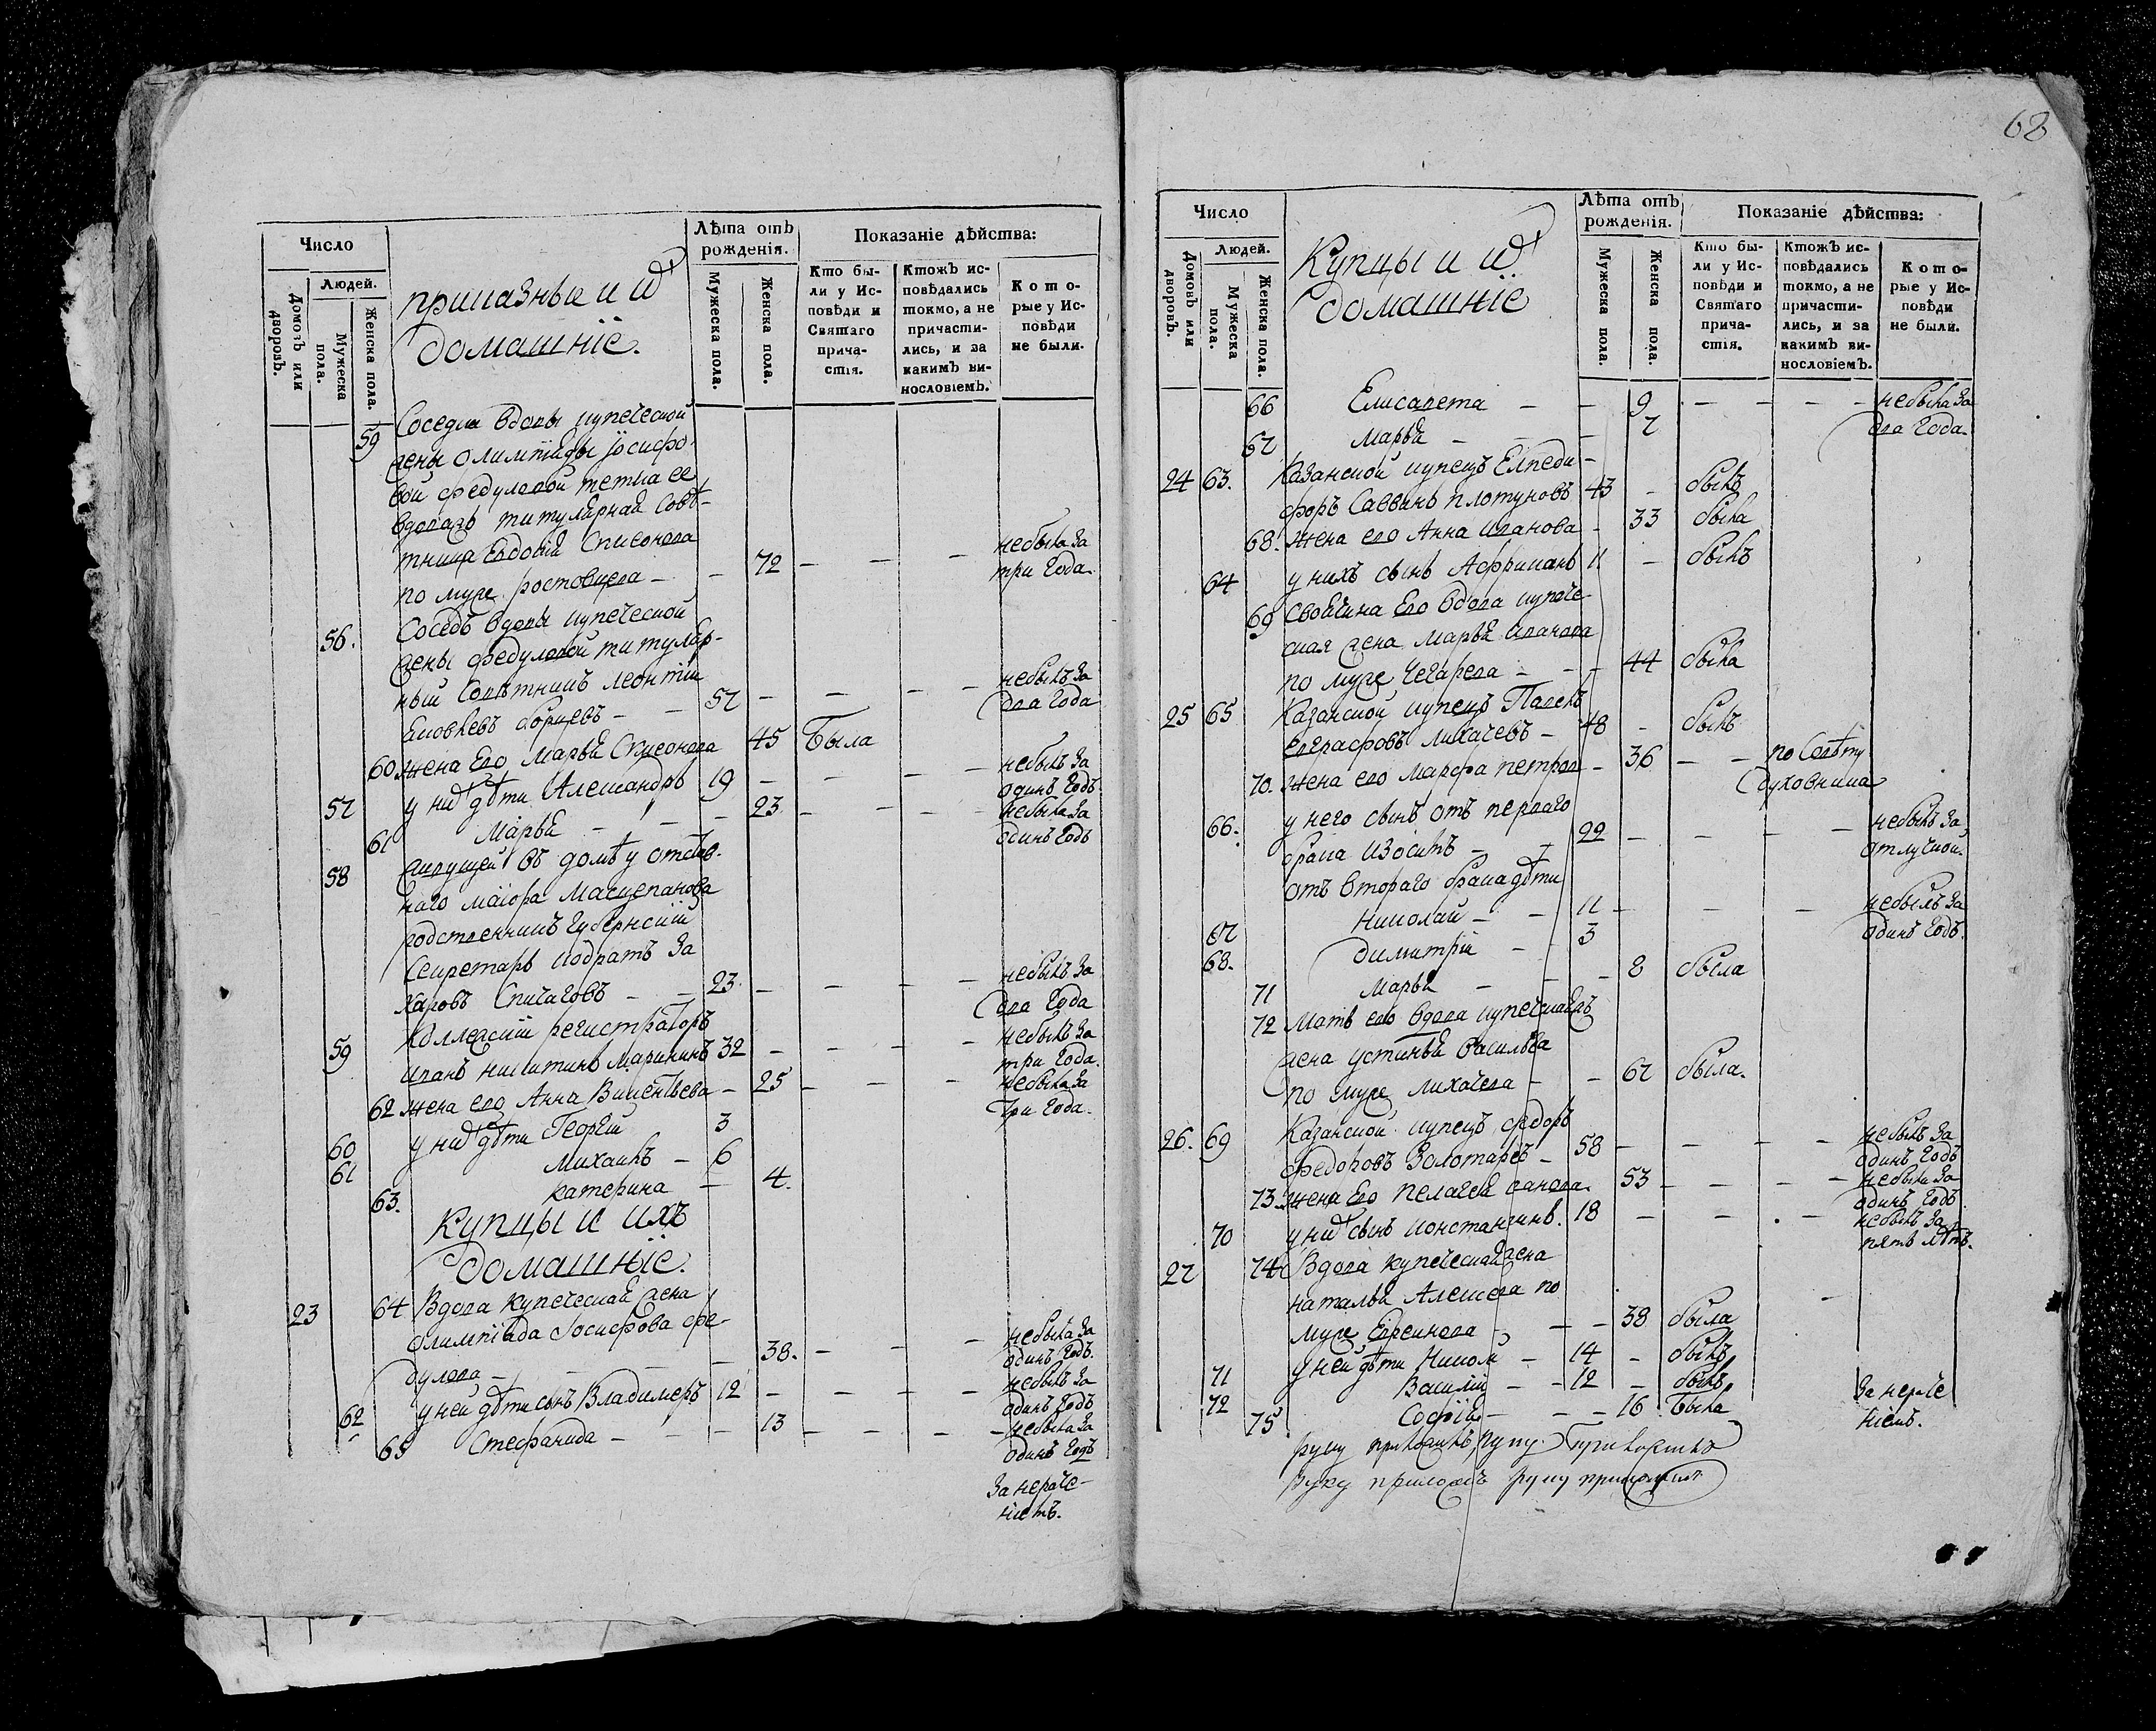 Число
Людей.
Домовъ или дворовъ.
Мужеска пола.
Женска пола.
приказные и их
домашніе.
Лѣта отъ рожденія.
Мужеска пола.
Женска пола.
Показаніе дѣйства:
Кто были у Исповѣди и Святаго причастія.
Ктожъ исповѣдались токмо, а не причастились, и за какимъ винословіемъ.
Которые у Исповѣди не были.
59 Соседка вдовы купеческой
жены олимпіады Іосифо
вой федуловой тетка ее
вдоваяъ титулярная совѣ-
тница Евдокія
по муже ростовцева — — 72 — — — небыла за
три года.
56. Соседъ вдовы купеческой
жены федуловой титуляр-
ный совѣтникъ леонтій
борщевъ — — 57 — — — — небылъ за
два года
60 жена его Марья 45 Была
57 у них дѣти Александръ 19 — — — — небылъ за
одинъ годъ
61 Марья — — — 23 — — — небыла за
одинъ годъ
58 живущей въ домѣ у отстав-
наго маіора
родственникъ губернскій
секретарь кодратъ за
харовъ — — 23 — — — — небылъ за
два года
59 Коллежскій регистраторъ
иванъ никитинъ 32 — — — — небылъ за
три года.
62 жена его Анна — 25 — — — небыла за
три года.
60 у них дѣти Георгій 3
61 михаилъ — 6
63. катерина — 4.
Купцы и ихъ
домашніе.
23 64 Вдова купеческая жена
олимпіада Іосифова фе-
дулова — — — — 38. — — — небыла за
одинъ годъ.
62 у ней дѣти сынъ Владимеръ 12 — — — — небылъ за
одинъ годъ
65 Стефанида — — — — 13 — — — — небыла за
одинъ годъ
за нераче-
ніемъ.
68
Число
Людей.
Домовъ или дворовъ.
Мужеска пола.
Женска пола.
Купцы и их
домашніе
Лѣта отъ рожденія.
Мужеска пола.
Женска пола.
Показаніе дѣйства:
Кто были у Исповѣди и Святаго причастія.
Ктожъ исповѣдались токмо, а не причастились, и за какимъ винословіемъ.
Которые у Исповѣди не были.
66 Елисавета — — 9 — — — — небыла за
67 Марья — — — 7 два года.
24 63. Казанской купецъ Елпеди-
форъ Саввинъ плотуновъ 43 — былъ
68. жена его Анна иванова — 33 была
64 у нихъ сынъ Африканъ 11 — былъ
69 свояченa его вдова купече-
ская жена марья иванова
по муже — — — 44 была
25 65 Казанской купецъ Павелъ
евграфовъ лихачевъ — 48 — былъ
70. жена его марфа петрова — 36 — — по совѣту
духовника
66. у него сынъ отъ перваго
брака изосимъ — — 22 — — — — небылъ за
отлучкой.
отъ втораго брака дѣти
67 николай — — 11 — — — небылъ за
68. димитрій — — 3 одинъ годъ.
71 марья — — — 8 была
72 Мать его вдова купеческаяъ
жена устинья васильева
по муже лихачева — — 67 была.
26. 69 Казанской купецъ федоръ
федоровъ Золотаревъ — 58 — — — — небылъ за
одинъ годъ
73. жена его пелагея 53 — — — — небыла за
одинъ годъ
70 у них сынъ константинъ. 18 — — — небылъ за
пять лѣтъ.
27 74 Вдова купеческая жена
наталья Алексева по
муже — — — 38 была
71 у ней дѣти Никол — 14 — былъ
72 Василій — — 12 — былъ за нераче
75 Софія — — — 16 Была ніемъ.
руку приложилъ руку приложилъ
руку приложилъ руку приложилъ